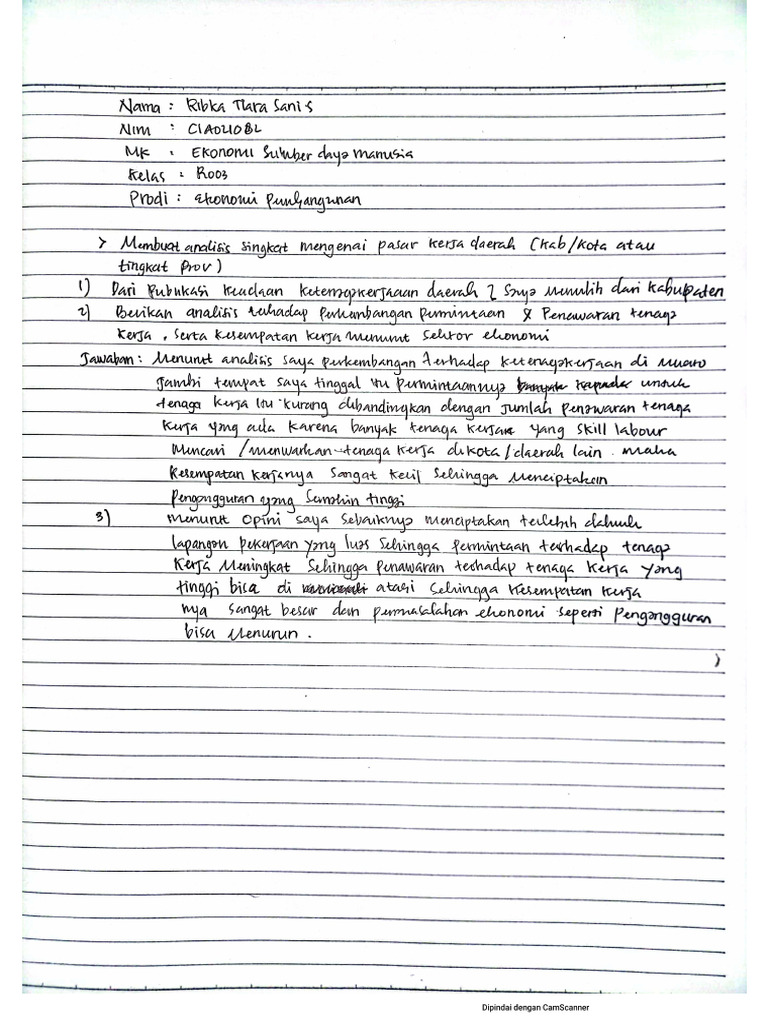 Nama : Ribka Tiara Sani S
Nim : C1A021082
MK : Ekonomi Sumber daya manusia
Kelas : R003
Prodi : Ekonomi Pembangunan
> Membuat analisis singkat mengenai pasar kerja daerah (kab/kota atau
tingkat prov)
1) Dari Publikasi Keadaan Ketenagakerjaaan daerah Saya Memilih dari Kabupaten
2) Berikan analisis terhadap perkembangan permintaan & Penawaran tenaga
kerja, serta kesempatan kerja menurut sektor ekonomi
Jawaban : Menurut analisis saya perkembangan terhadap ketenagakerjaan di muaro
jambi tempat saya tinggal itu permintaannya untuk
tenaga kerja itu kurang dibandingkan dengan jumlah penawaran tenaga
kerja yang ada karena banyak tenaga kerja yang skill labour
Mencari / menwarkan tenaga kerja dikota / daerah lain. maka
Kesempatan kerjanya sangat kecil sehingga menciptakan
Pengangguran yang semakin tinggi
3) menurut opini saya sebaiknya menciptakan terlebih dahulu
lapangan pekerjaan yang luas sehingga permintaan terhadap tenaga
kerja Meningkat sehingga penawaran terhadap tenaga kerja yang
tinggi bisa di atasi sehingga kesempatan kerja
nya sangat besar dan permasalahan ekonomi seperti Pengangguran
bisa Menurun.
Dipindai dengan CamScanner